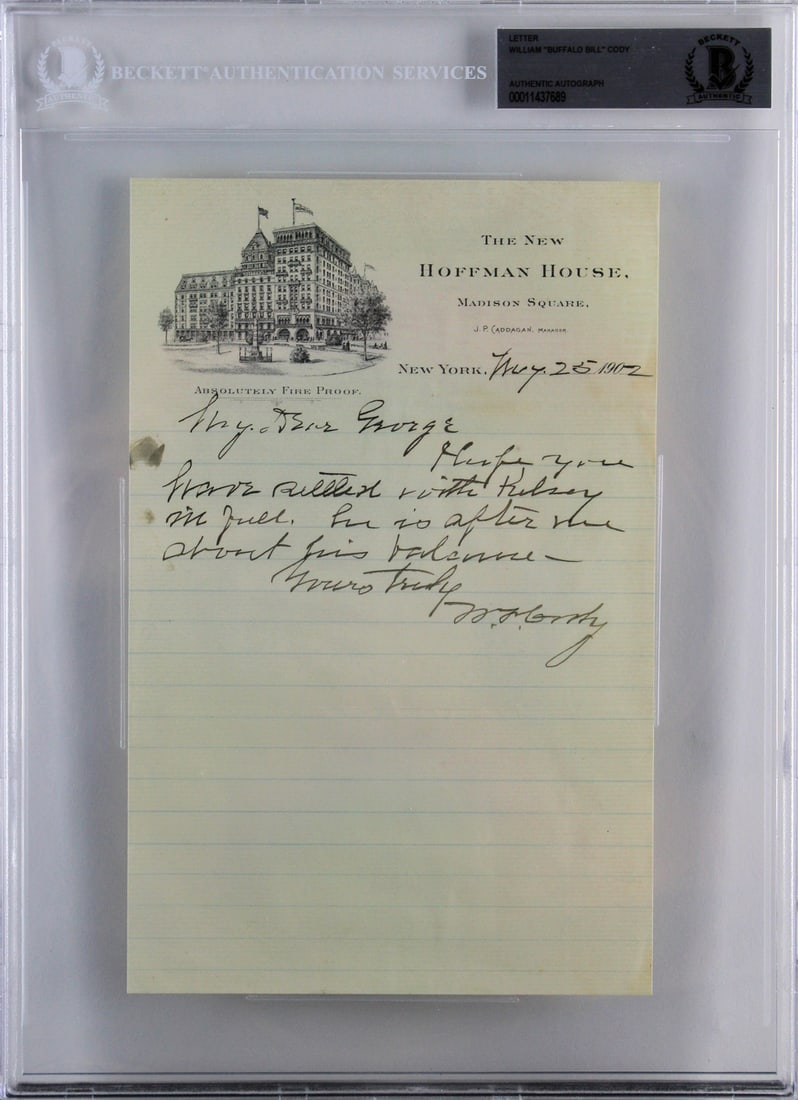 BECKETT AUTHENTICATION SERVICES
B
AUTHENTIC
LETTER
WILLIAM "BUFFALO BILL" CODY
AUTHENTIC AUTOGRAPH
00011437689
BECKETT
B
AUTHENTIC
THE NEW
HOFFMAN HOUSE,
MADISON SQUARE,
J. P. CADDAGAN, MANAGER
NEW YORK, 25 1902
ABSOLUTELY FIRE PROOF.
My Dear George
I hope you
have settled with Kelsey
in full. he is after me
about his balance—
Yours truly
W. F. Cody